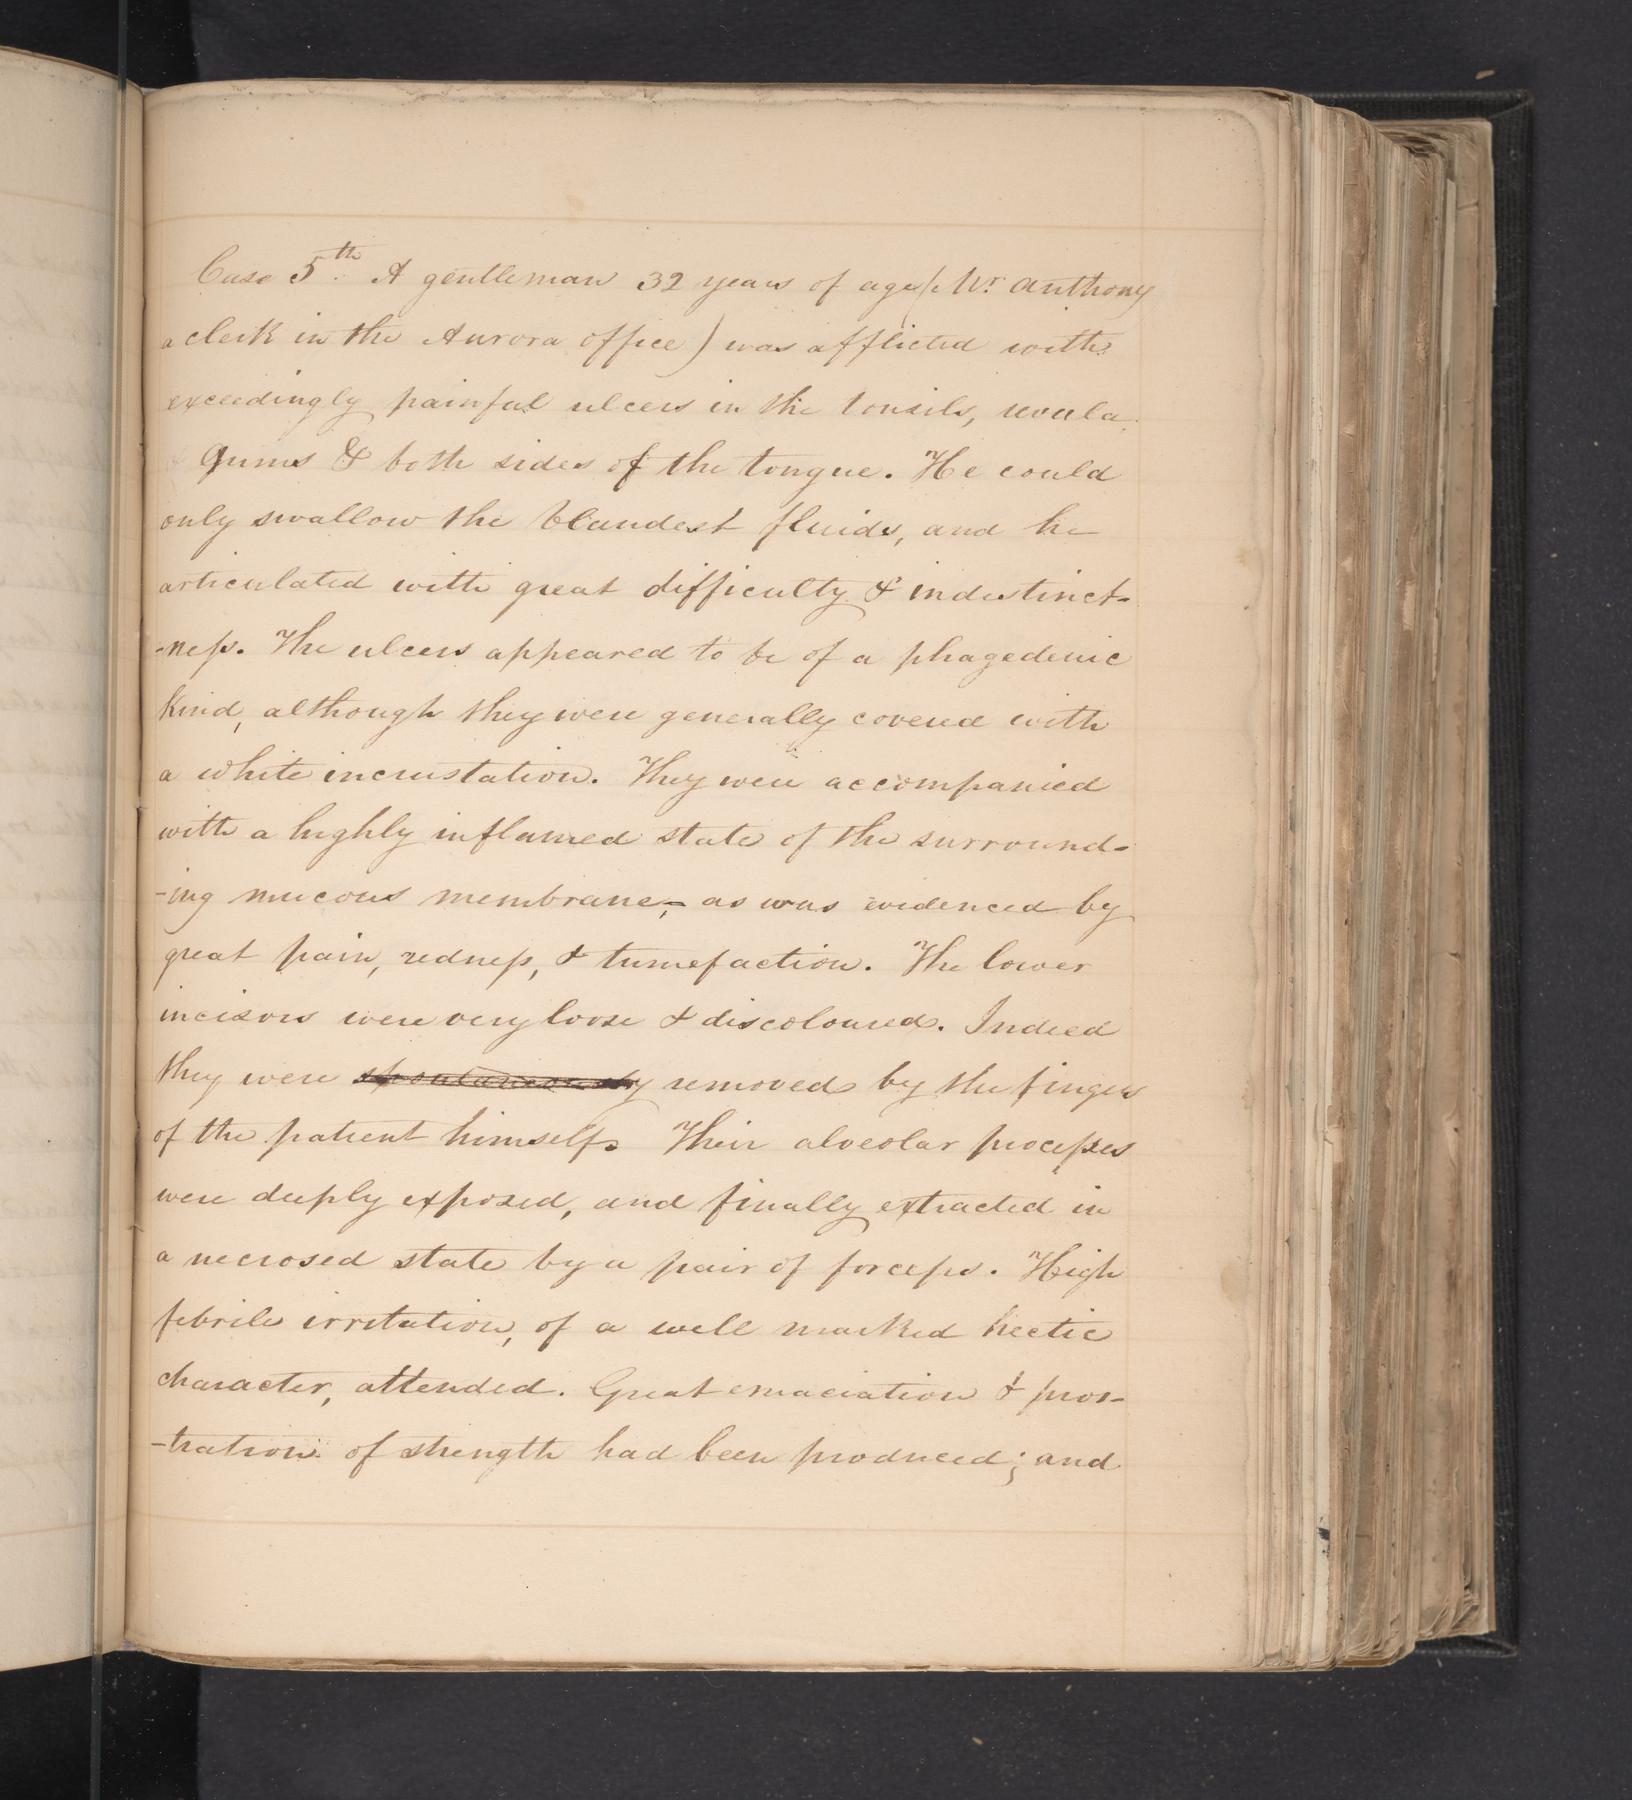 Case 5th. A gentleman 32 years of age (Mr. Anthony
a clerk in the Aurora office) was afflicted with
exceedingly painful ulcers in the tonsils, uvula
Gums & both sides of the tongue. He could
only swallow the blandest fluids, and he
articulated with great difficulty & indistinct-
-ness. The ulcers appeared to be of a phagedenic
kind, although they were generally covered with
a white incrustation. They were accompanied
with a highly inflamed state of the surround-
-ing mucous membrane, as was evidenced by
great pain, redness, & tumefaction. The lower
incisors were very loose & discoloured. Indeed
they were spontaneously removed by the fingers
of the patient himself. Their alveolar processes
were deeply exposed, and finally extracted in
a necrosed state by a pair of forceps. High
febrile irritation, of a well marked hectic
character, attended. Great emaciation & pros-
-tration of strength had been produced; and